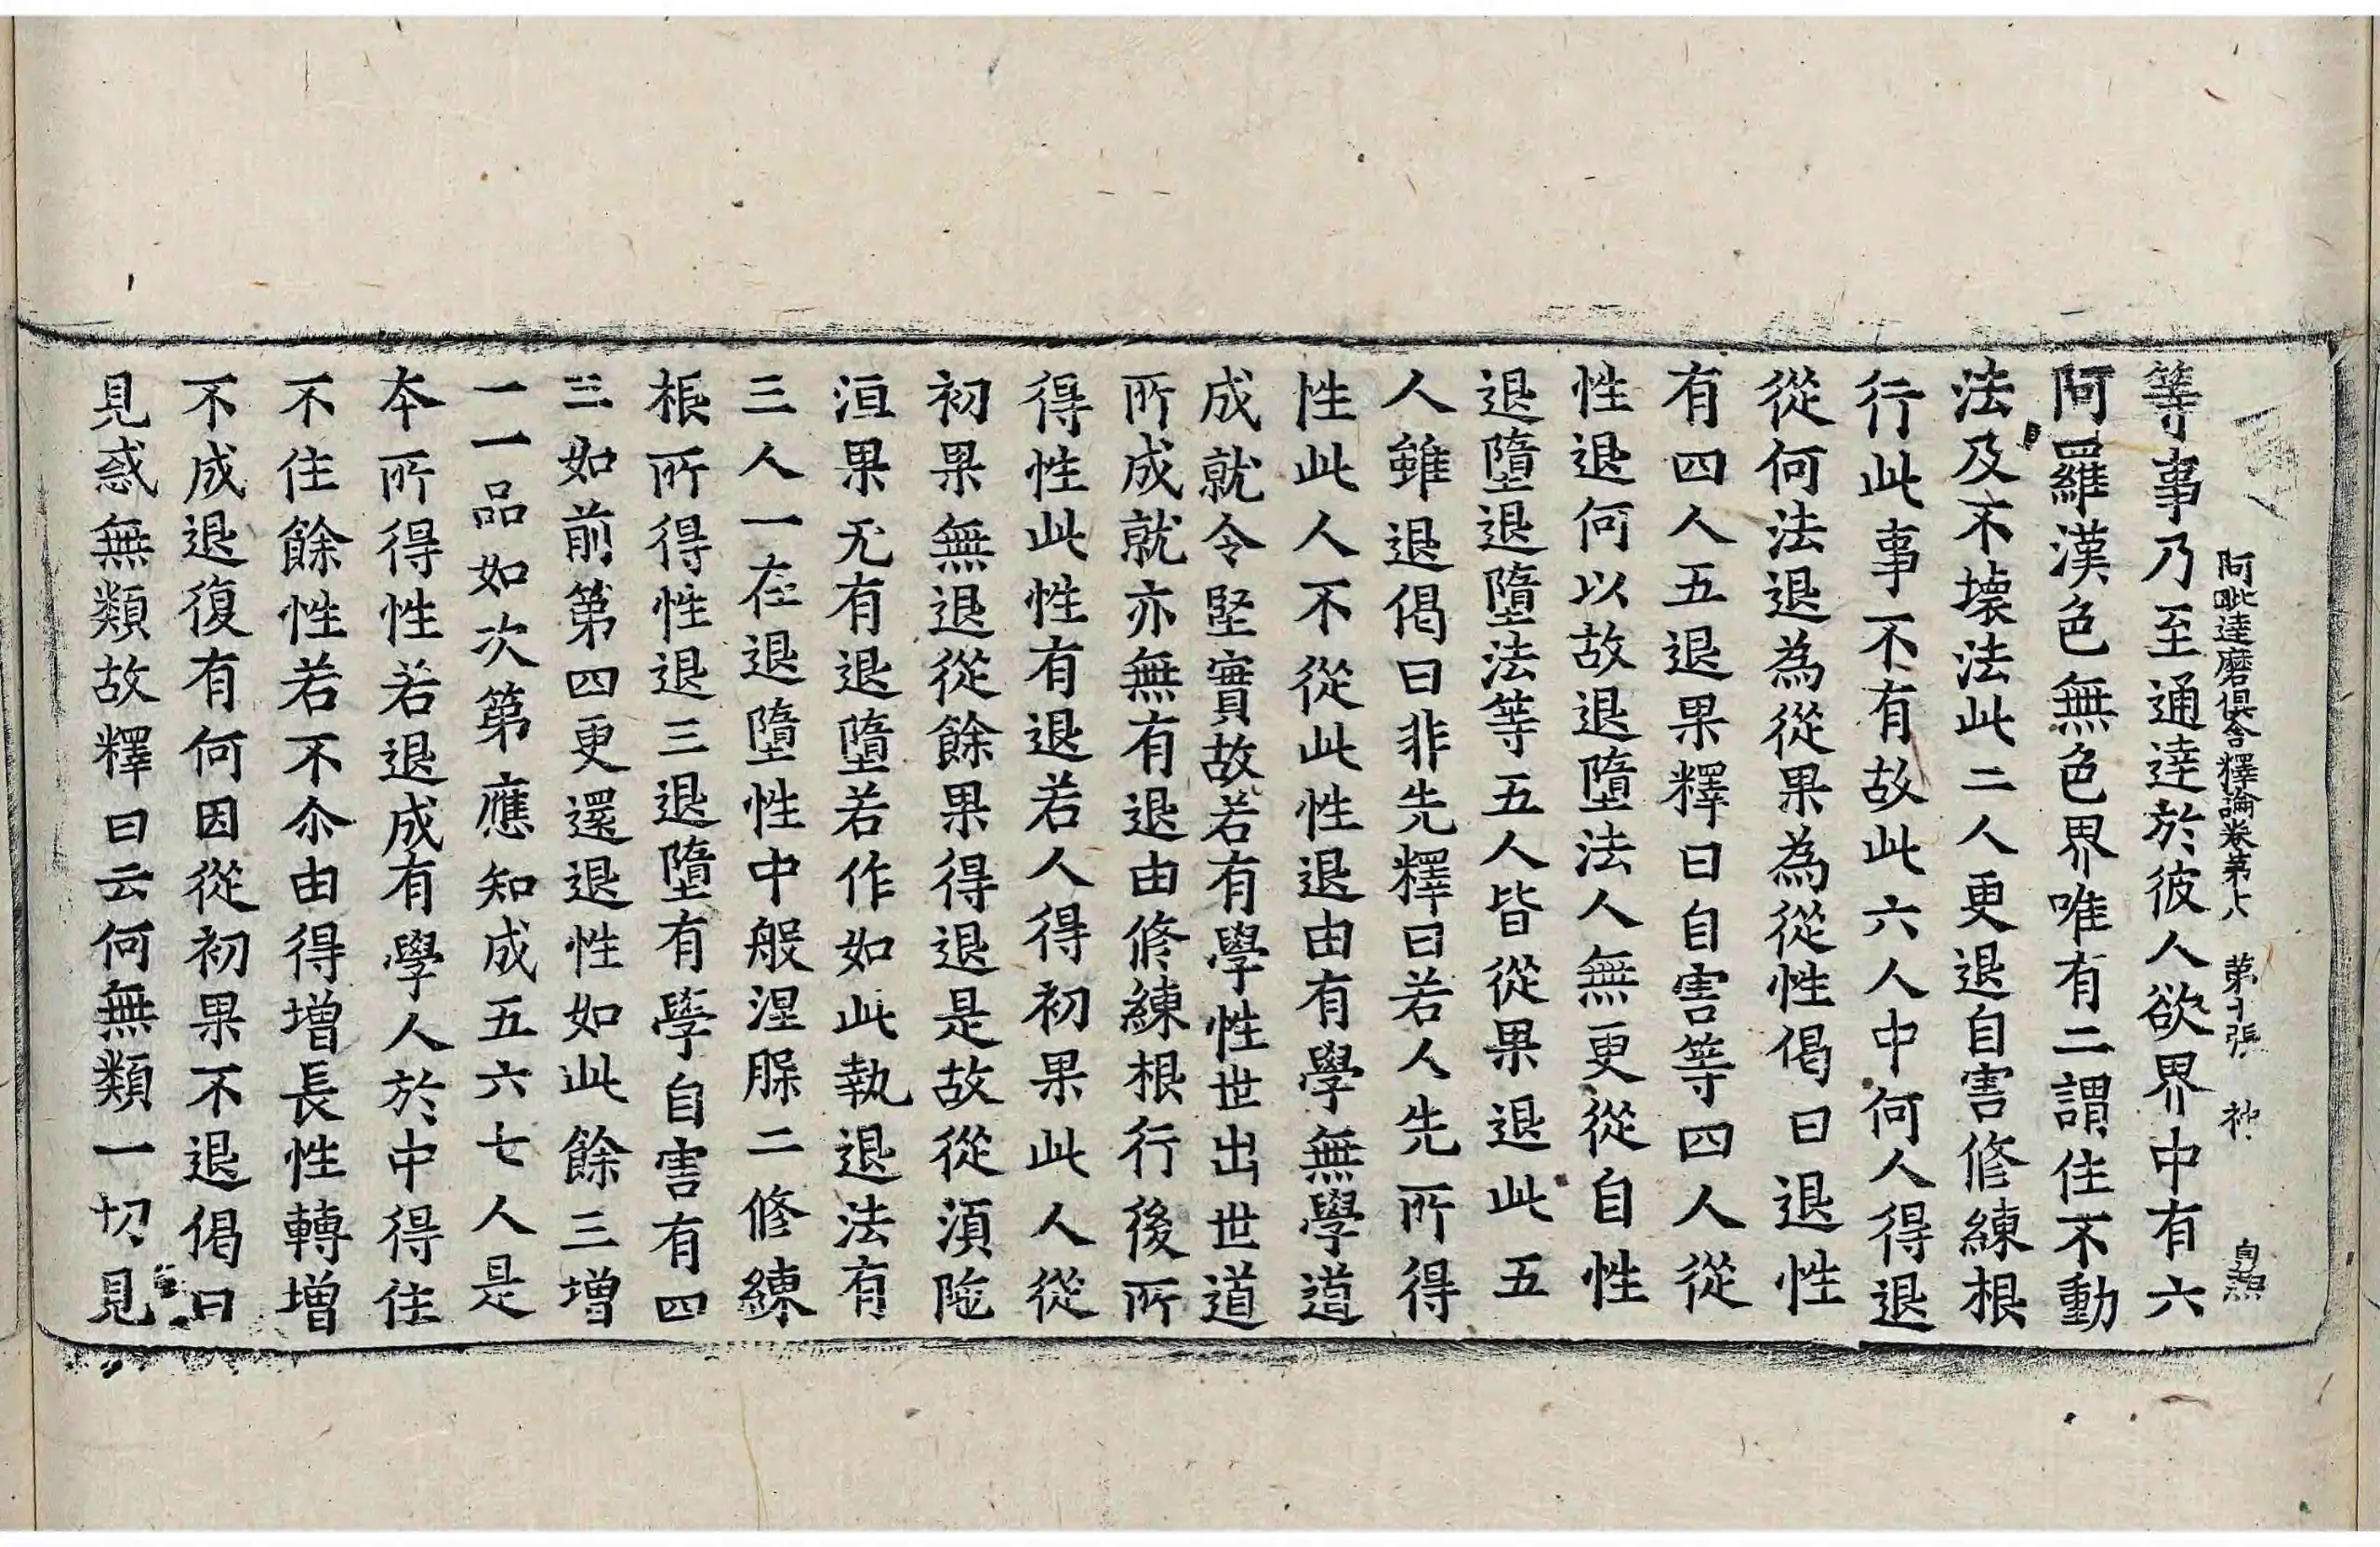 阿毗達磨俱舍釋論卷第十八 第十張 神
等事乃至通達於彼人欲界中有六
阿羅漢色無色界唯有二謂住不動
法及不壞法此二人更退自害修練根
行此事不有故此六人中何人得退
從何法退為從果為從性偈曰退性
有四人五退果釋曰自害等四人從
性退何以故退墮法人無更從自性
退墮退墮法等五人皆從果退此五
人雖退偈曰非先釋曰若人先所得
性此人不從此性退由有學無學道
成就令堅實故若有學性世出世道
所成就亦無有退由修練根行後所
得性此性有退若人得初果此人從
初果無退從餘果得退是故從須陁
洹果无有退墮若作如此執退法有
三人一在退墮性中般涅槃二修練
根所得性退三退墮有學自害有四
三如前第四更還退性如此餘三增
一一品如次第應知成五六七人是
本所得性若退成有學人於中得住
不住餘性若不尒由得增長性轉增
不成退復有何因從初果不退偈曰
見惑無類故釋曰云何無類一切見